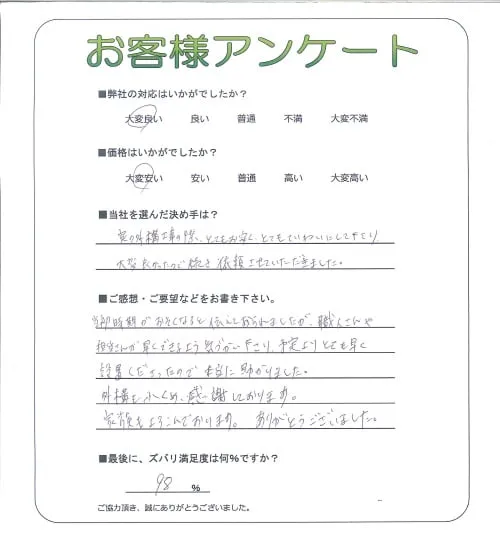 お客様アンケート
■弊社の対応はいかがでしたか？
大変良い 良い 普通 不満 大変不満
■価格はいかがでしたか？
大変安い 安い 普通 高い 大変高い
■当社を選んだ決め手は？
外構工事の際、とてもお安く、とてもていねいにして下さり
大変良かったので続き依頼させていただきました。
■ご感想・ご要望などをお書き下さい。
時期がおそくなると伝えておられましたが、職人さんや
担当さんが早くできるよう気づかい下さり、予定よりとても早く
設置くださったので本当に助かりました。
外構もふくめ、感謝しております。
家族もよろこんでおります。 ありがとうございました。
■最後に、ズバリ満足度は何%ですか？
98 %
ご協力頂き、誠にありがとうございました。